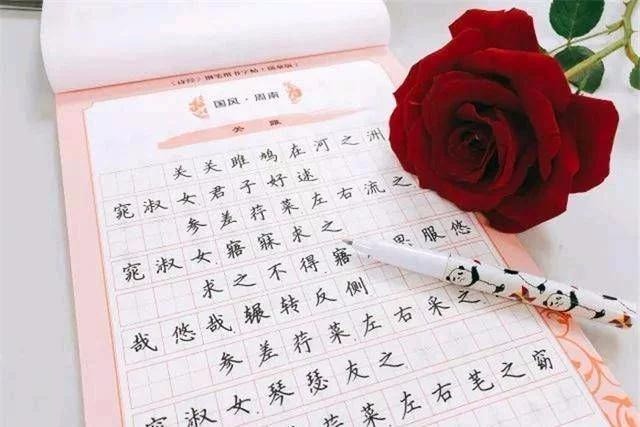 《诗经》钢笔楷书字帖
国风·周南
关雎
关关雎鸠在河之洲
窕淑女君子好逑
参差荇菜左右流之
窕淑女寤寐求之
求之不得寤思服悠
哉悠哉辗转反侧
参差荇菜左右采之
窕淑女琴瑟友之
参差荇菜左右笔之窈